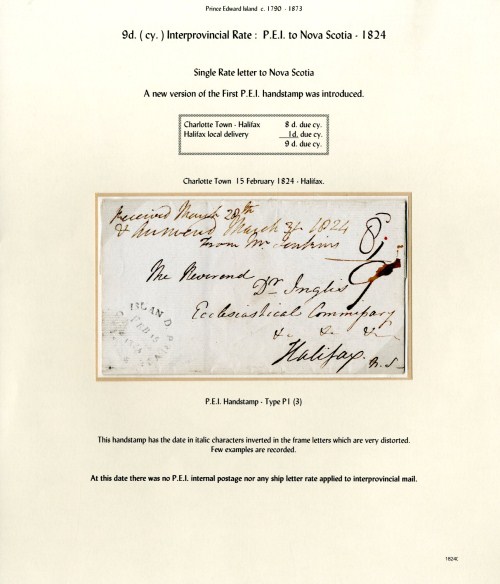 Prince Edward Island c. 1790 - 1873
9d. ( cy. ) Interprovincial Rate : P.E.I. to Nova Scotia - 1824
Single Rate letter to Nova Scotia
A new version of the First P.E.I. handstamp was introduced.
Charlotte Town - Halifax 8 d. due cy.
Halifax local delivery 1d. due cy.
9 d. due cy.
Charlotte Town 15 February 1824 - Halifax.
Received March 28th
& answered March 31 1824
From Mr Jenkins
8
9
The Reverend
Dr Inglis
Ecclesiastical Commissary
&c &c &c
Halifax. N.S.
ISLAND
FEB 15
P.E.I. Handstamp - Type P1 (3)
This handstamp has the date in italic characters inverted in the frame letters which are very distorted.
Few examples are recorded.
At this date there was no P.E.I. internal postage nor any ship letter rate applied to interprovincial mail.